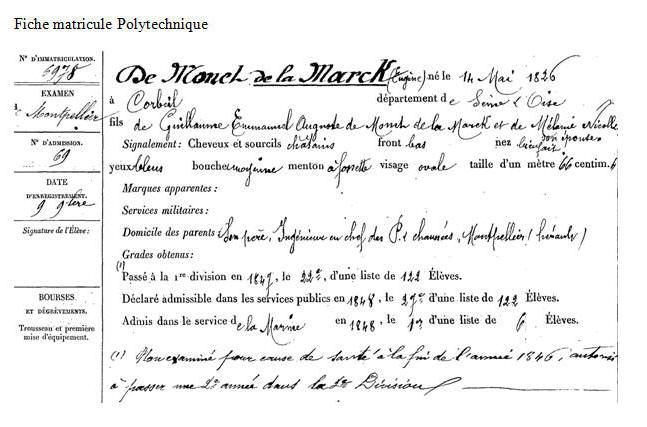 Fiche matricule Polytechnique
N° D'IMMATRICULATION.
6978
EXAMEN
à Montpellier
N° D'ADMISSION.
69
DATE
D'ENREGISTREMENT.
9 9bre
Signature de l'Élève :
BOURSES
ET DÉGRÈVEMENTS.
Trousseau et première
mise d'équipement.
De Monch de la Marck (Eugène) né le 14 Mai 1826
à Corbeil département de Seine & Oise
fils de Guillaume Emmanuel Auguste de Monch de la Marck et de Mélanie Nicolle
son épouse
Signalement : Cheveux et sourcils châtains front bas nez bien fait
yeux bleus bouche moyenne menton à fossette visage ovale taille d'un mètre 66 centim.
Marques apparentes :
Services militaires :
Domicile des parents : Son père, Ingénieur en chef des P.ts chaussées, Montpellier (hérault)
Grades obtenus :
(1) Passé à la 1re division en 1847, le 22e, d'une liste de 122 Élèves.
Déclaré admissible dans les services publics en 1848, le 27e d'une liste de 122 Élèves.
Admis dans le service de la Marine en 1848, le 1er d'une liste de 6 Élèves.
(1) Non examiné pour cause de santé à la fin de l'année 1846, autorisé
à passer une 2e année dans la 2e Division